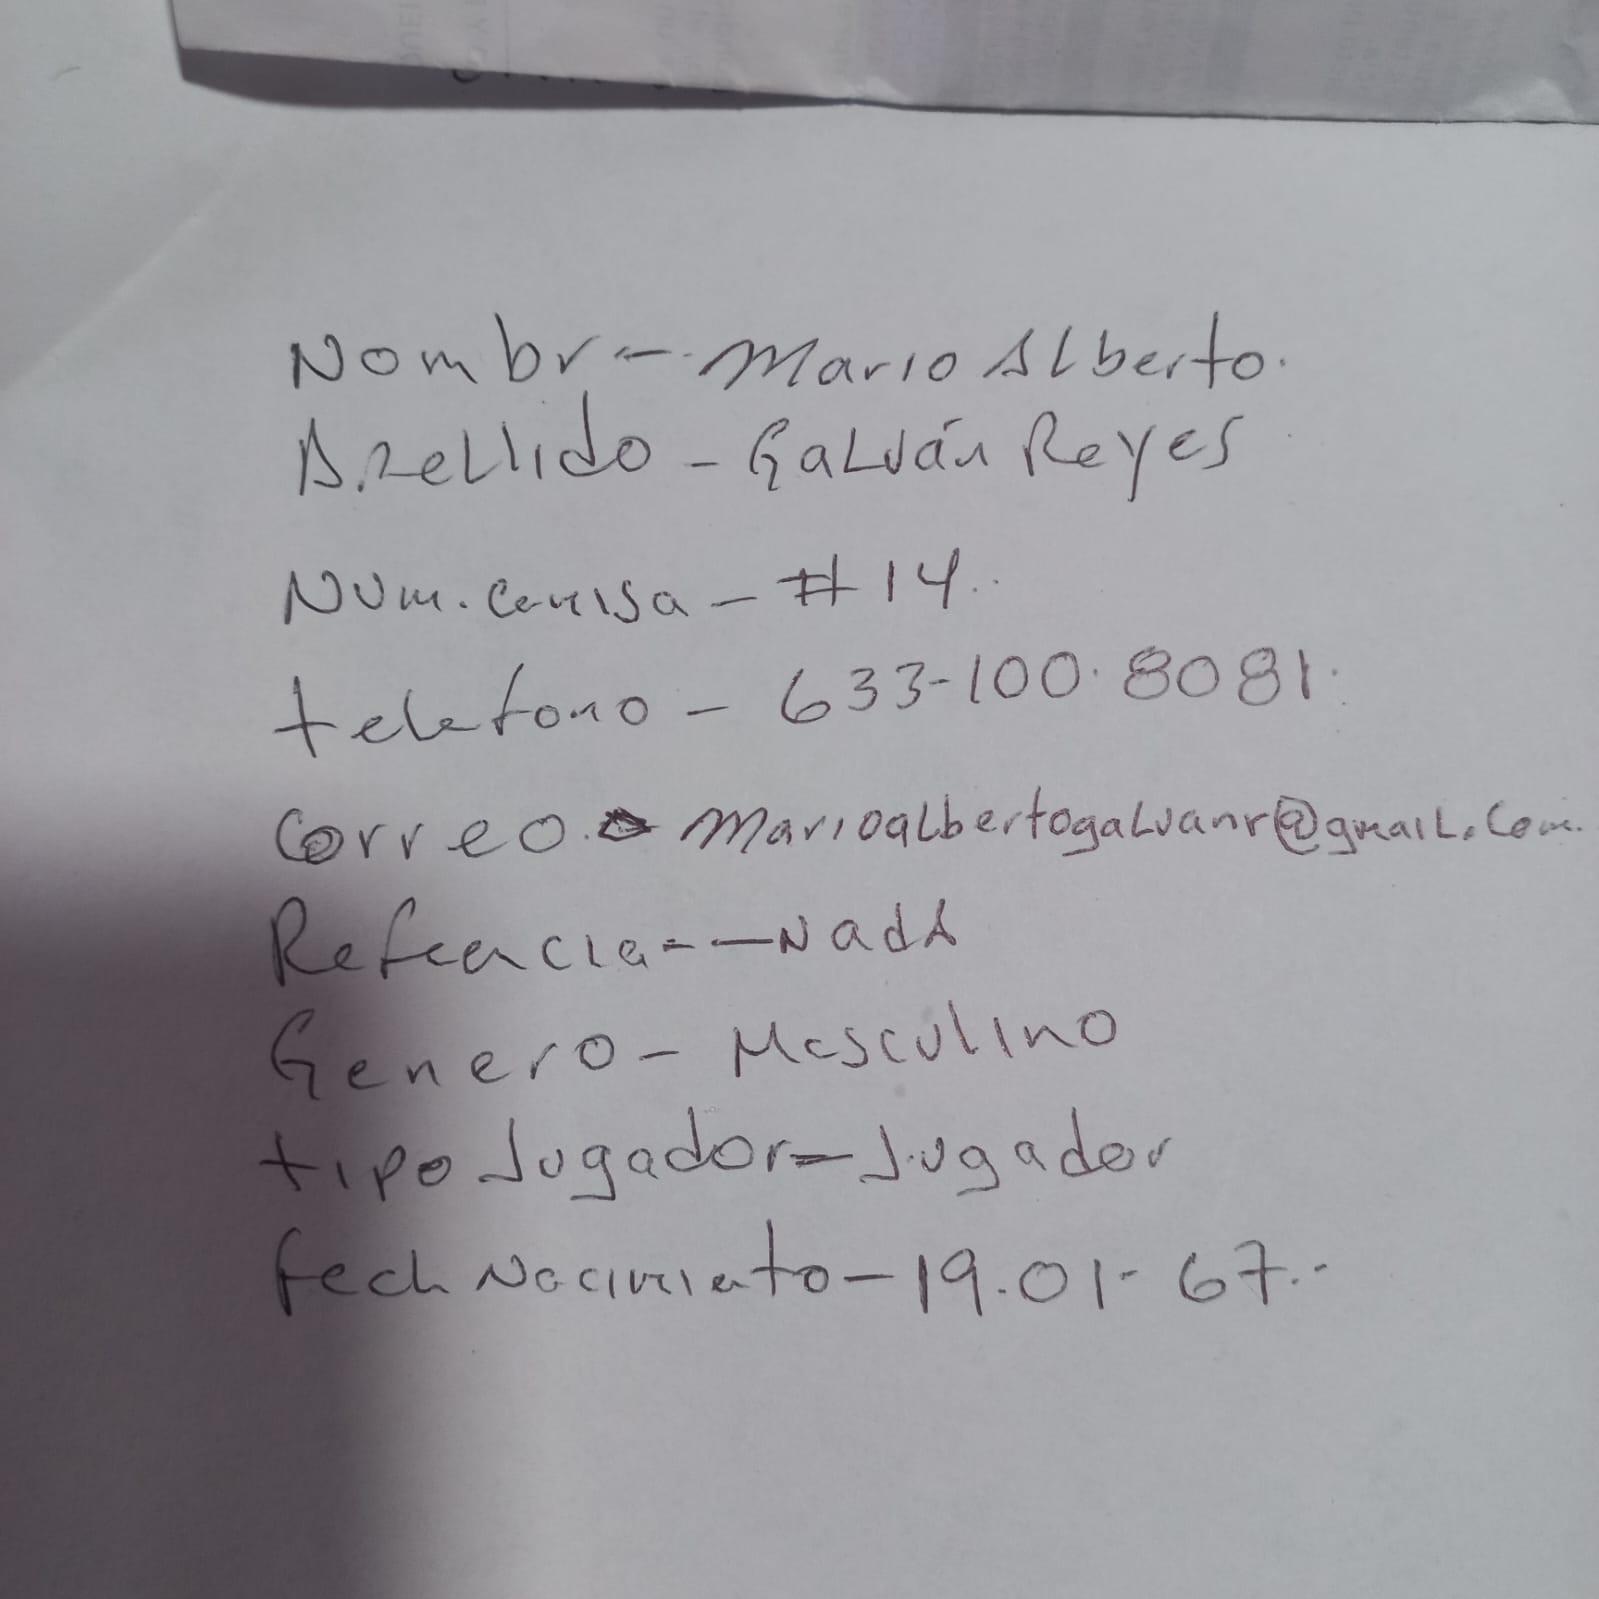 Nombr-. Mario Alberto.
Apellido - Galván Reyes
Num. Camisa - #14.
telefono - 633-100.8081.
Correo. marioalbertogalvanr@gmail.com.
Refeencia - - Nada
Genero - Masculino
tipo Jugador - Jugador
fech Nacimiento - 19.01-67..